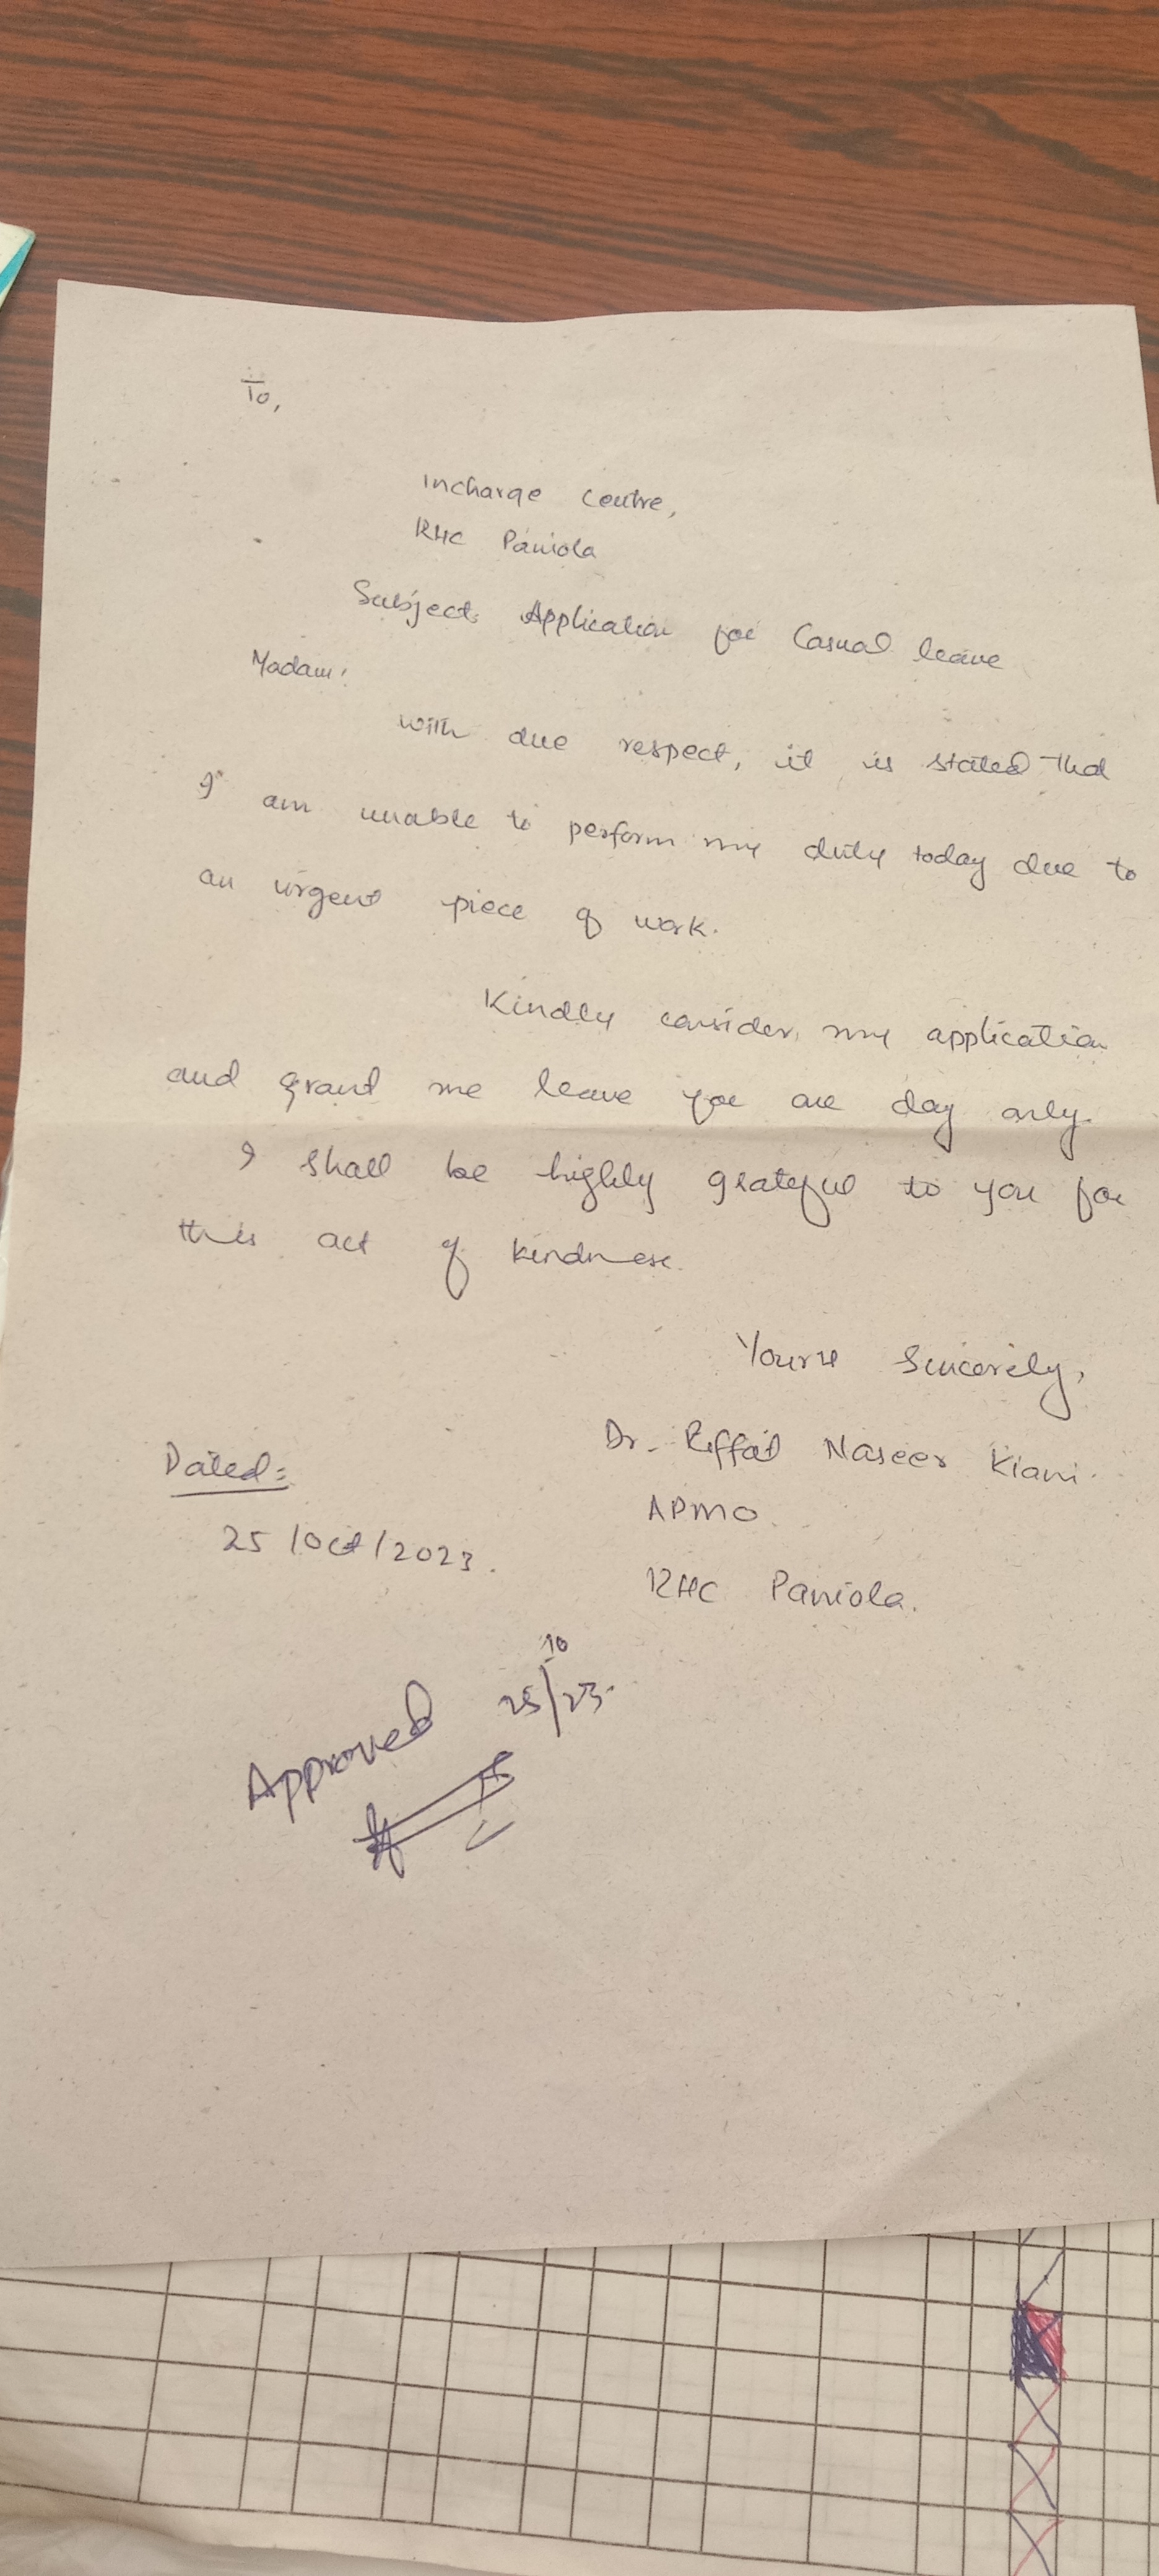 To,
Incharge Centre,
RHC Paniola
Subject: Application for Casual leave
Madam!
with due respect, it is stated that
I am unable to perform my duty today due to
an urgent piece of work.
Kindly consider my application
and grand me leave for one day only.
I shall be highly grateful to you for
this act of kindness.
Yours Sincerely,
Dr. Riffat Naseer Kiani.
APMO
RHC Paniola.
Dated:
25/Oct/2023.
Approved 25/10/23.